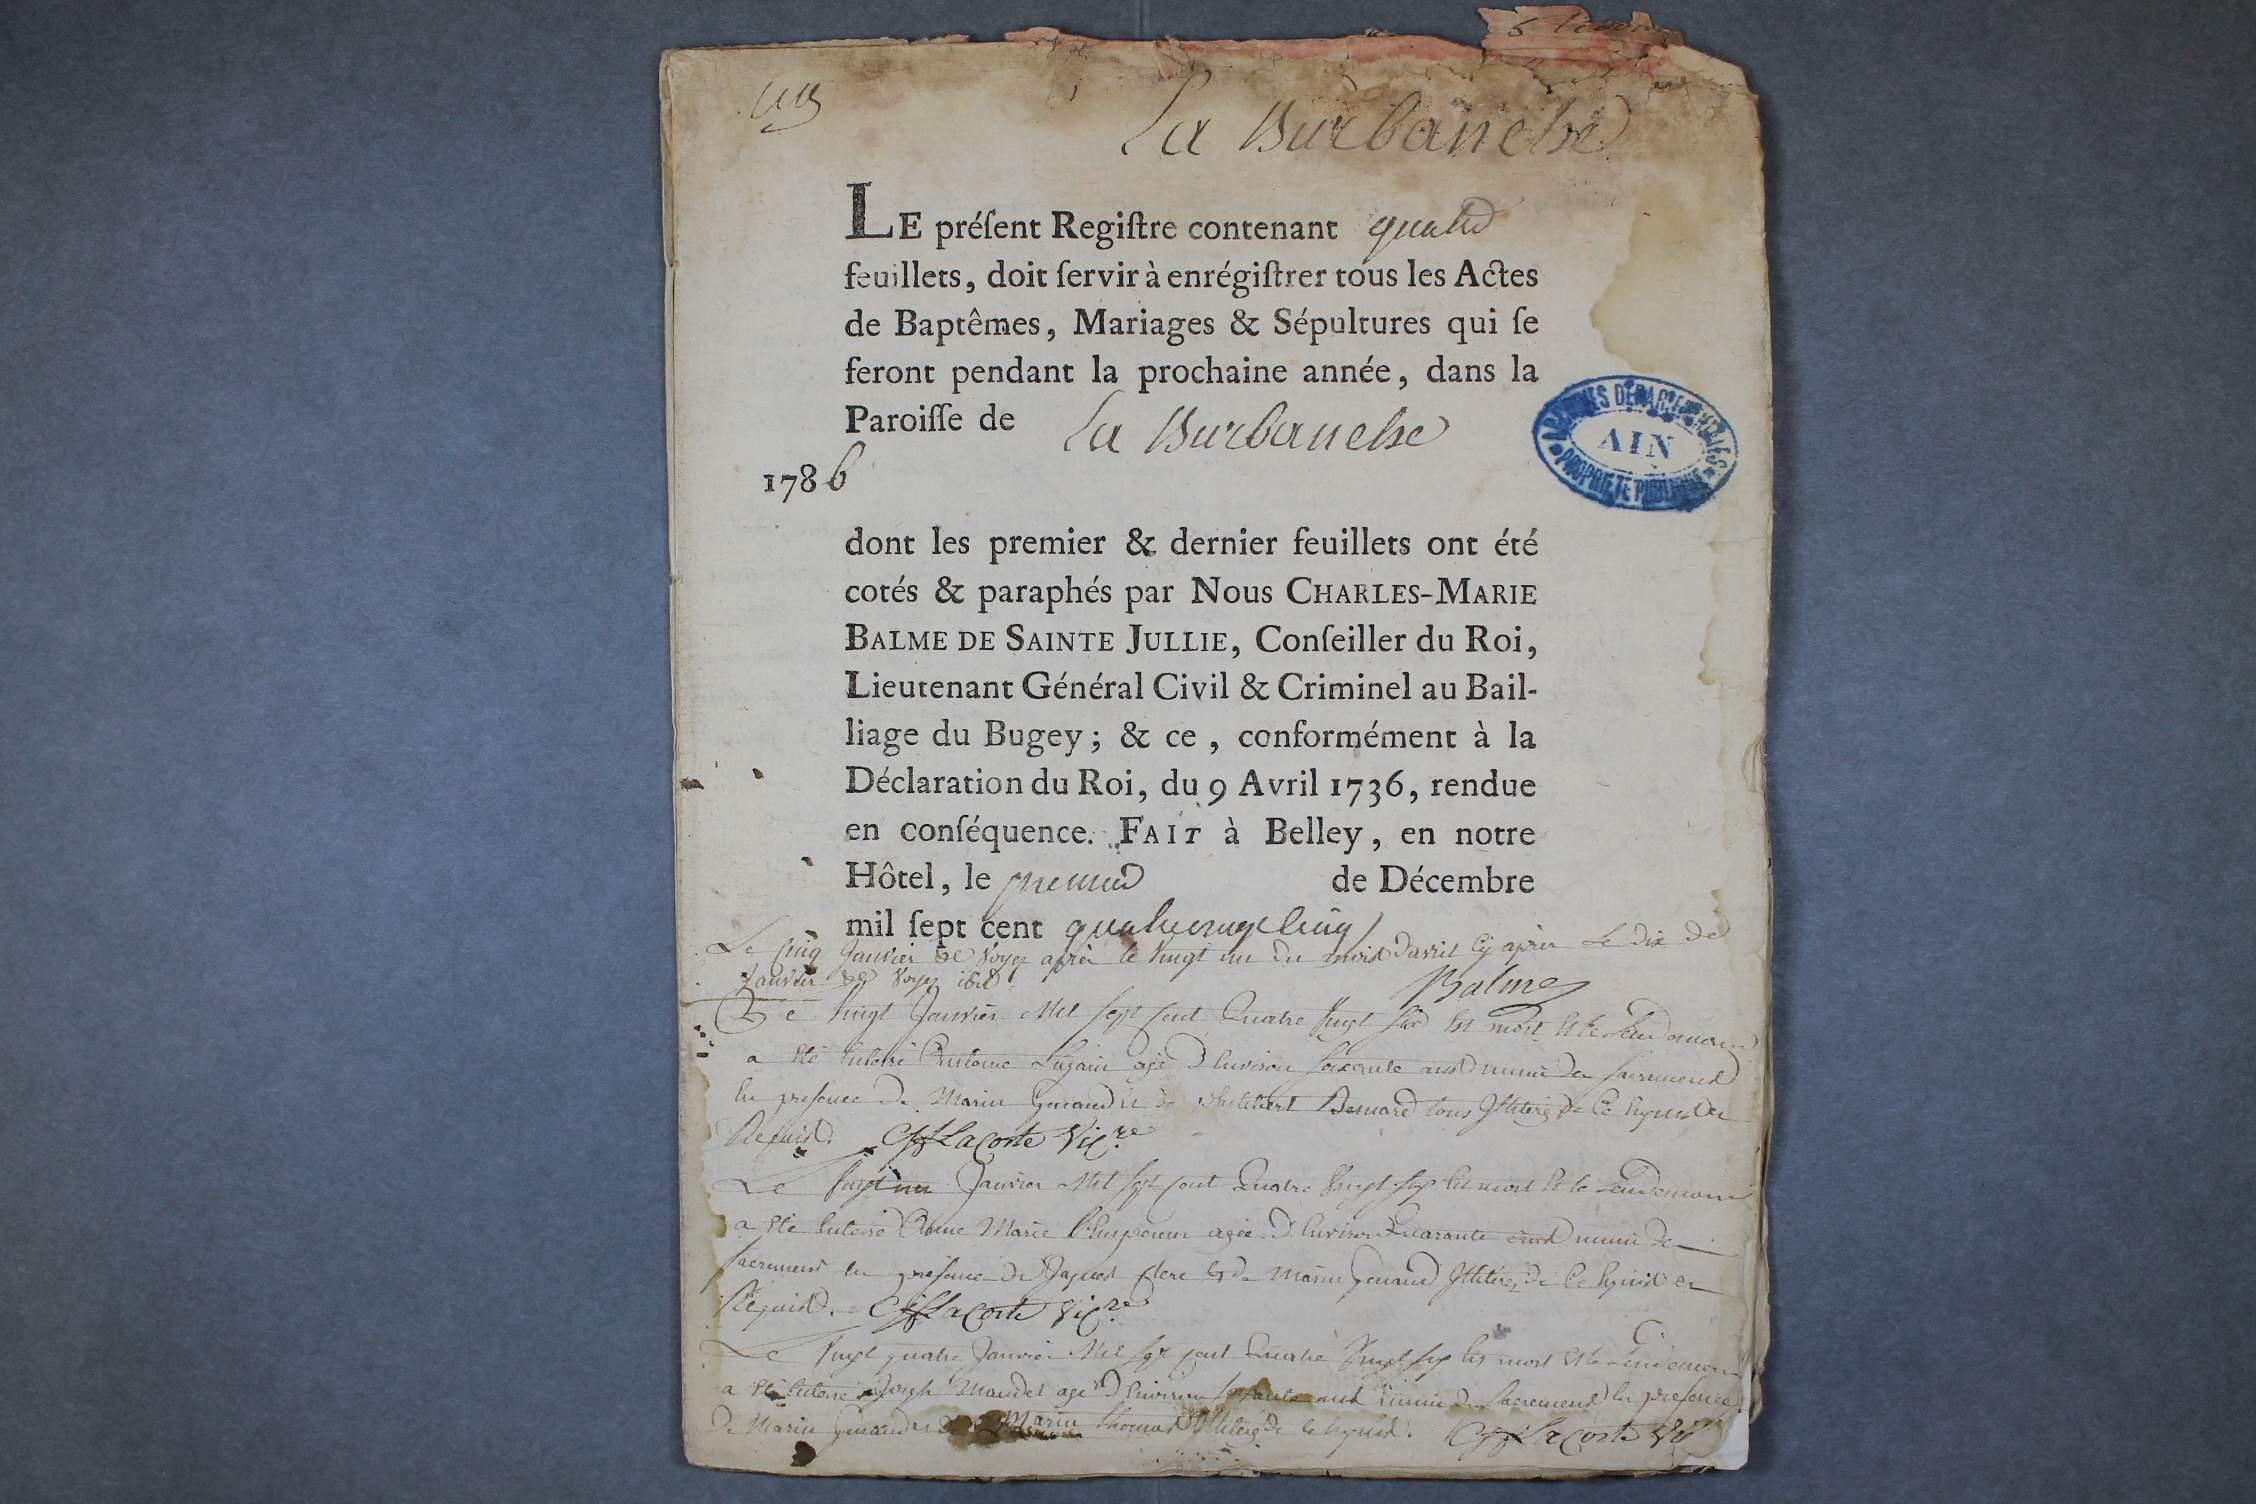 La Burbanche
LE préſent Regiſtre contenant quatre
feuillets, doit ſervir à enrégiſtrer tous les Actes
de Baptêmes, Mariages & Sépultures qui ſe
feront pendant la prochaine année, dans la
Paroiſſe de La Burbanche
1786
ARCHIVES DÉPARTEMENTALES
AIN
PROPRIÉTÉ PUBLIQUE
dont les premier & dernier feuillets ont été
cotés & paraphés par Nous CHARLES-MARIE
BALME DE SAINTE JULLIE, Conſeiller du Roi,
Lieutenant Général Civil & Criminel au Bail-
liage du Bugey; & ce, conformément à la
Déclaration du Roi, du 9 Avril 1736, rendue
en conſéquence. FAIT à Belley, en notre
Hôtel, le premier de Décembre
mil ſept cent quatrevingt cinq
Le cinq Janvier voyez après le vingt un du mois d'avril cy après Le dix de
Janvier voyez
Balme
Le vingt Janvier Mil sept cent Quatre vingt six est mort et le Lendemain
a été enterré Antoine agé d'environ soixante ans munie des sacrements
en presence de Marin et de Bernard tous Illiterés de ce enquis et
Requis. Lacoste Vic.re
Le vingt un Janvier Mil sept cent Quatre vingt six est mort et le Lendemain
a été enterré Anne Marie agée d'environ Quarante munie des
sacrements en presence de Jaques et de Marin Illiterés de ce enquis et
Requis. Lacoste Vic.re
Le vingt quatre Janvier Mil sept cent Quatre vingt six est mort et le Lendemain
a été enterré Joseph agé d'environ ans munie des sacrements en presence
de Marin et de Marin Thomas Illiterés de ce enquis. Lacoste Vic